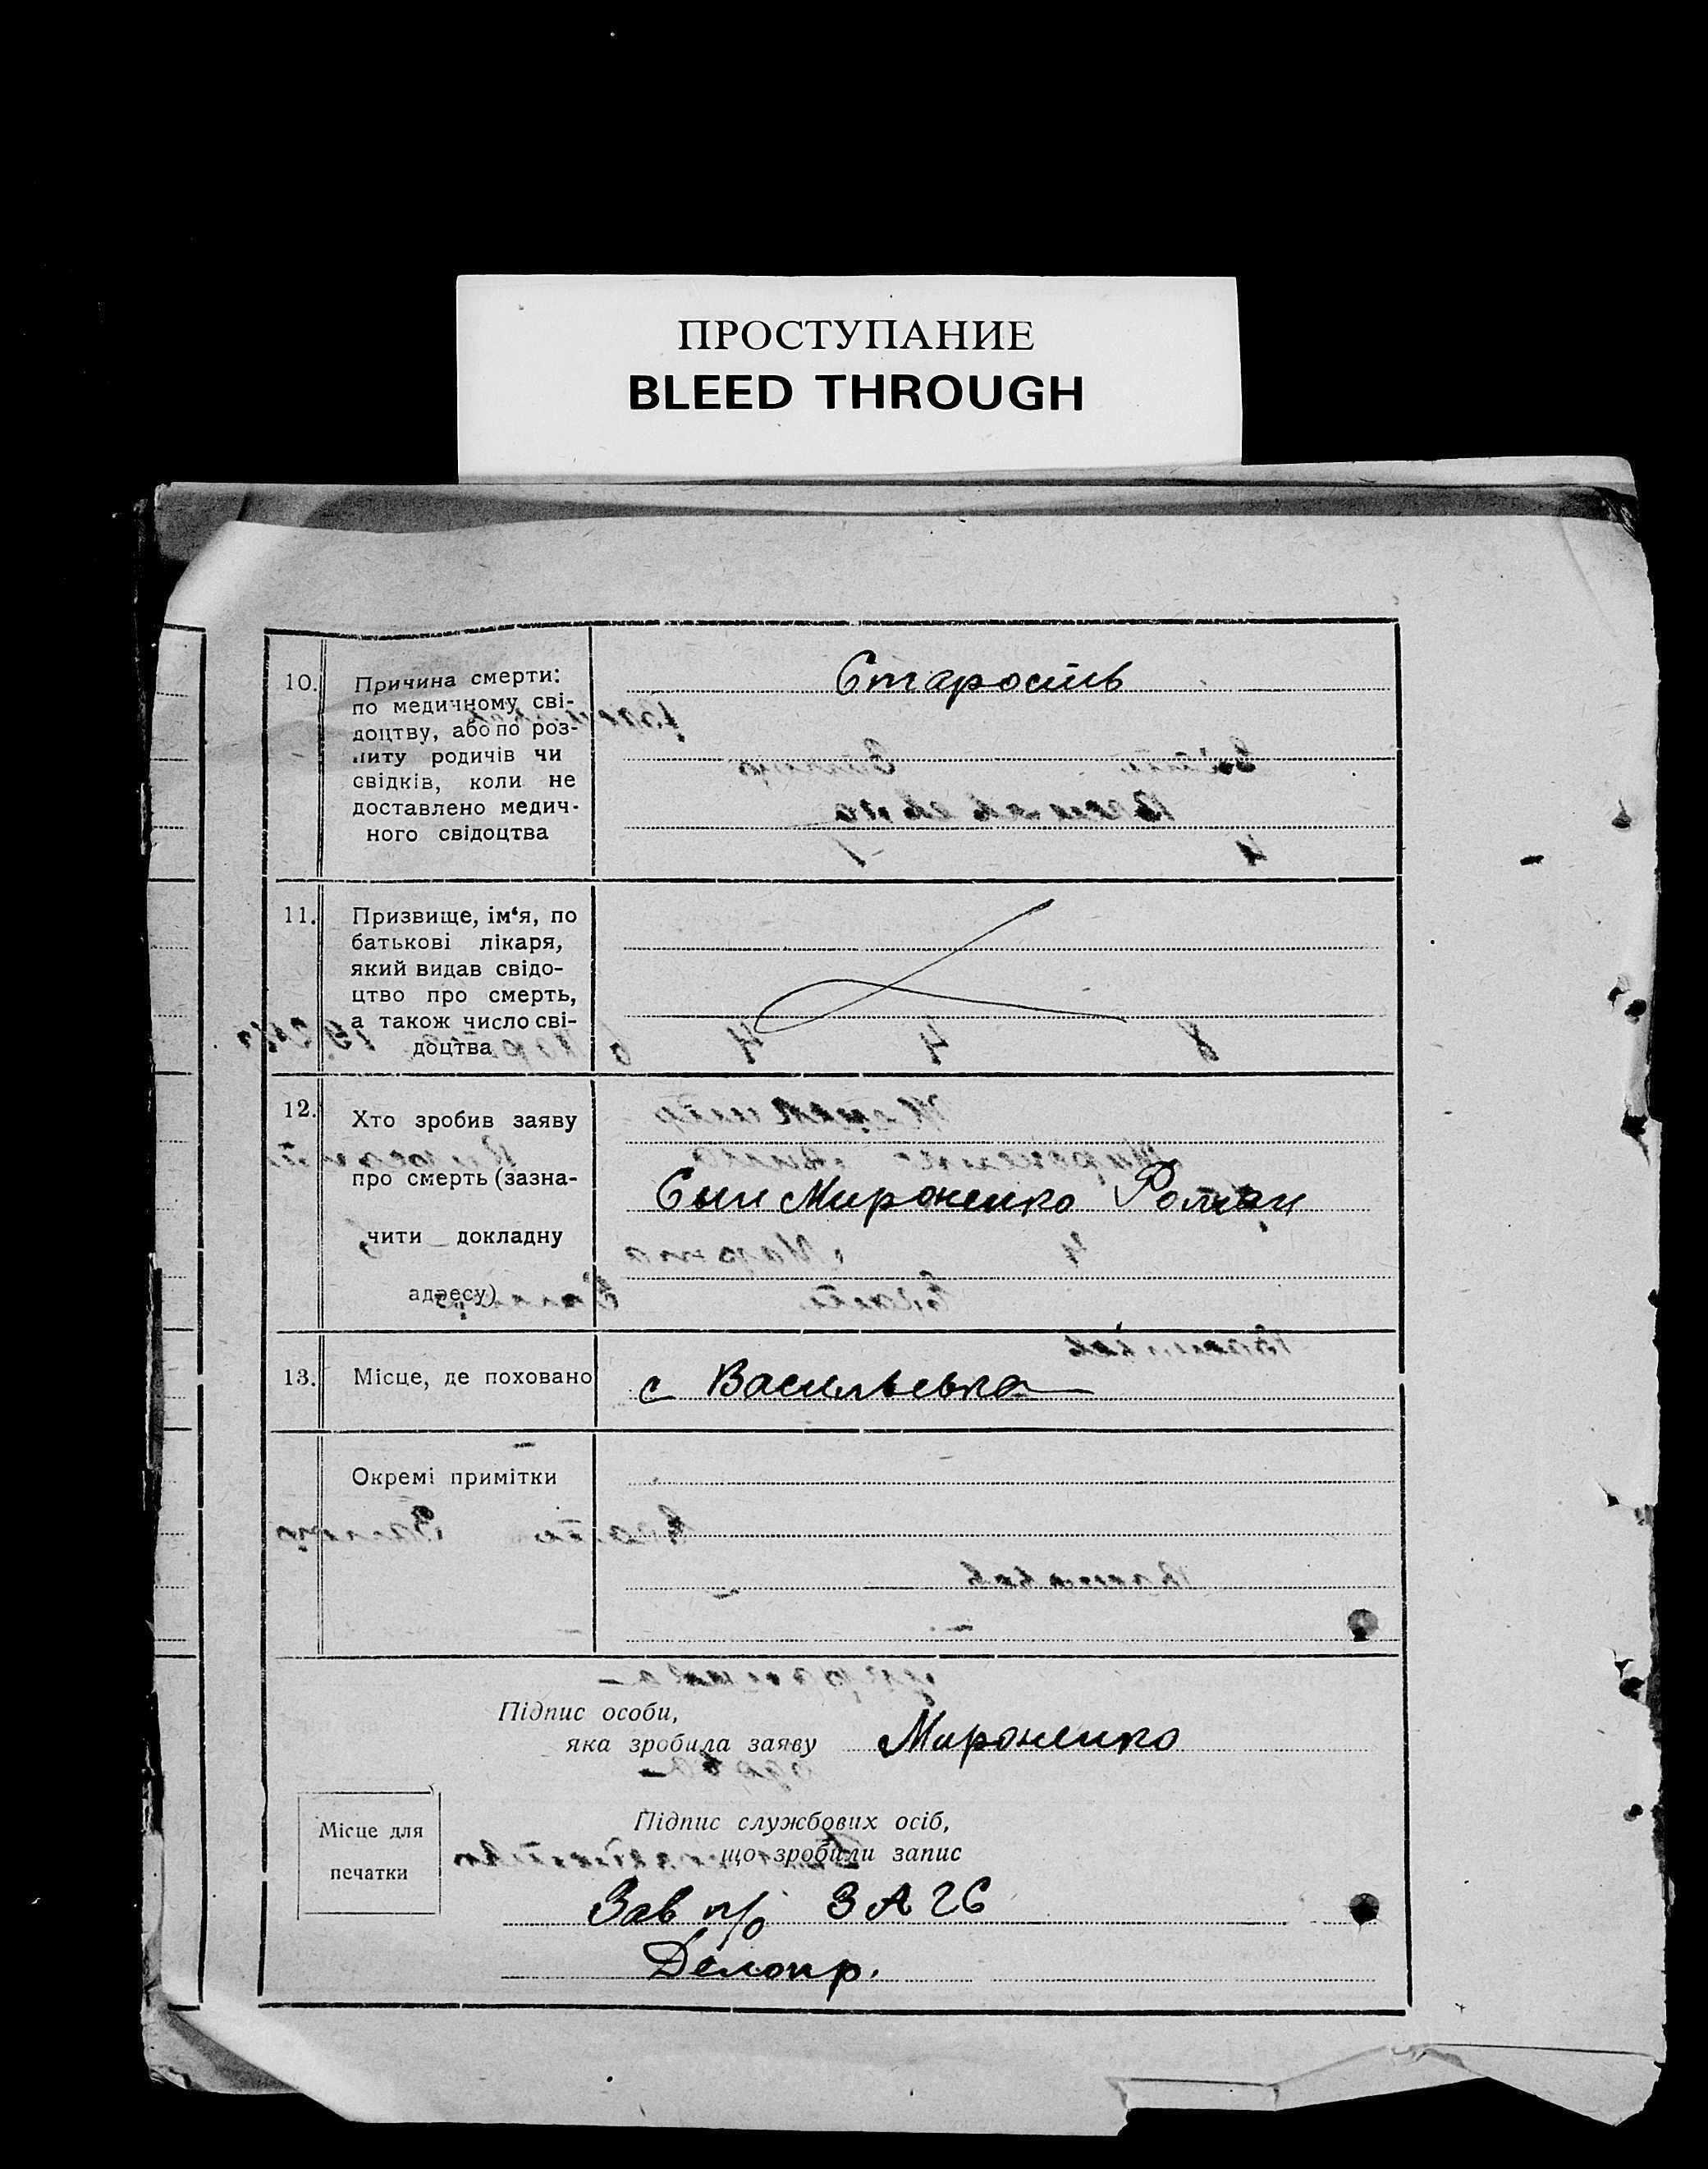 ПРОСТУПАНИЕ
BLEED THROUGH
10. Причина смерти:
по медичному сві-
доцтву, або по роз-
питу родичів чи
свідків, коли не
доставлено медич-
ного свідоцтва
Старость
11. Призвище, ім‘я, по
батькові лікаря,
який видав свідо-
цтво про смерть,
а також число сві-
доцтва
12. Хто зробив заяву
про смерть (зазна-
чити докладну
адресу)
Сын Мироненко Роман
13. Місце, де поховано
с Васильевка
Окремі примітки
Підпис особи,
яка зробила заяву Мироненко
Місце для
печатки
Підпис службових осіб,
що зробили запис
Зав п/о ЗАГС
Делопр.